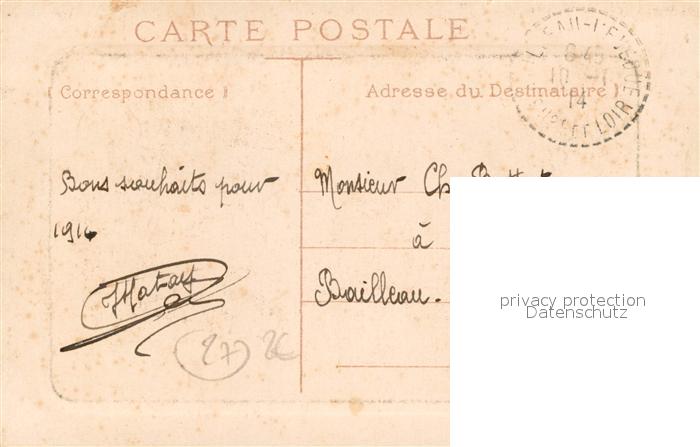 CARTE POSTALE
Correspondance
Adresse du Destinataire
8 45
10 -1
14
LOIR
Bons souhaits pour
1914
Monsieur Ch
à
Bailleau.
27 2€
privacy protection
Datenschutz